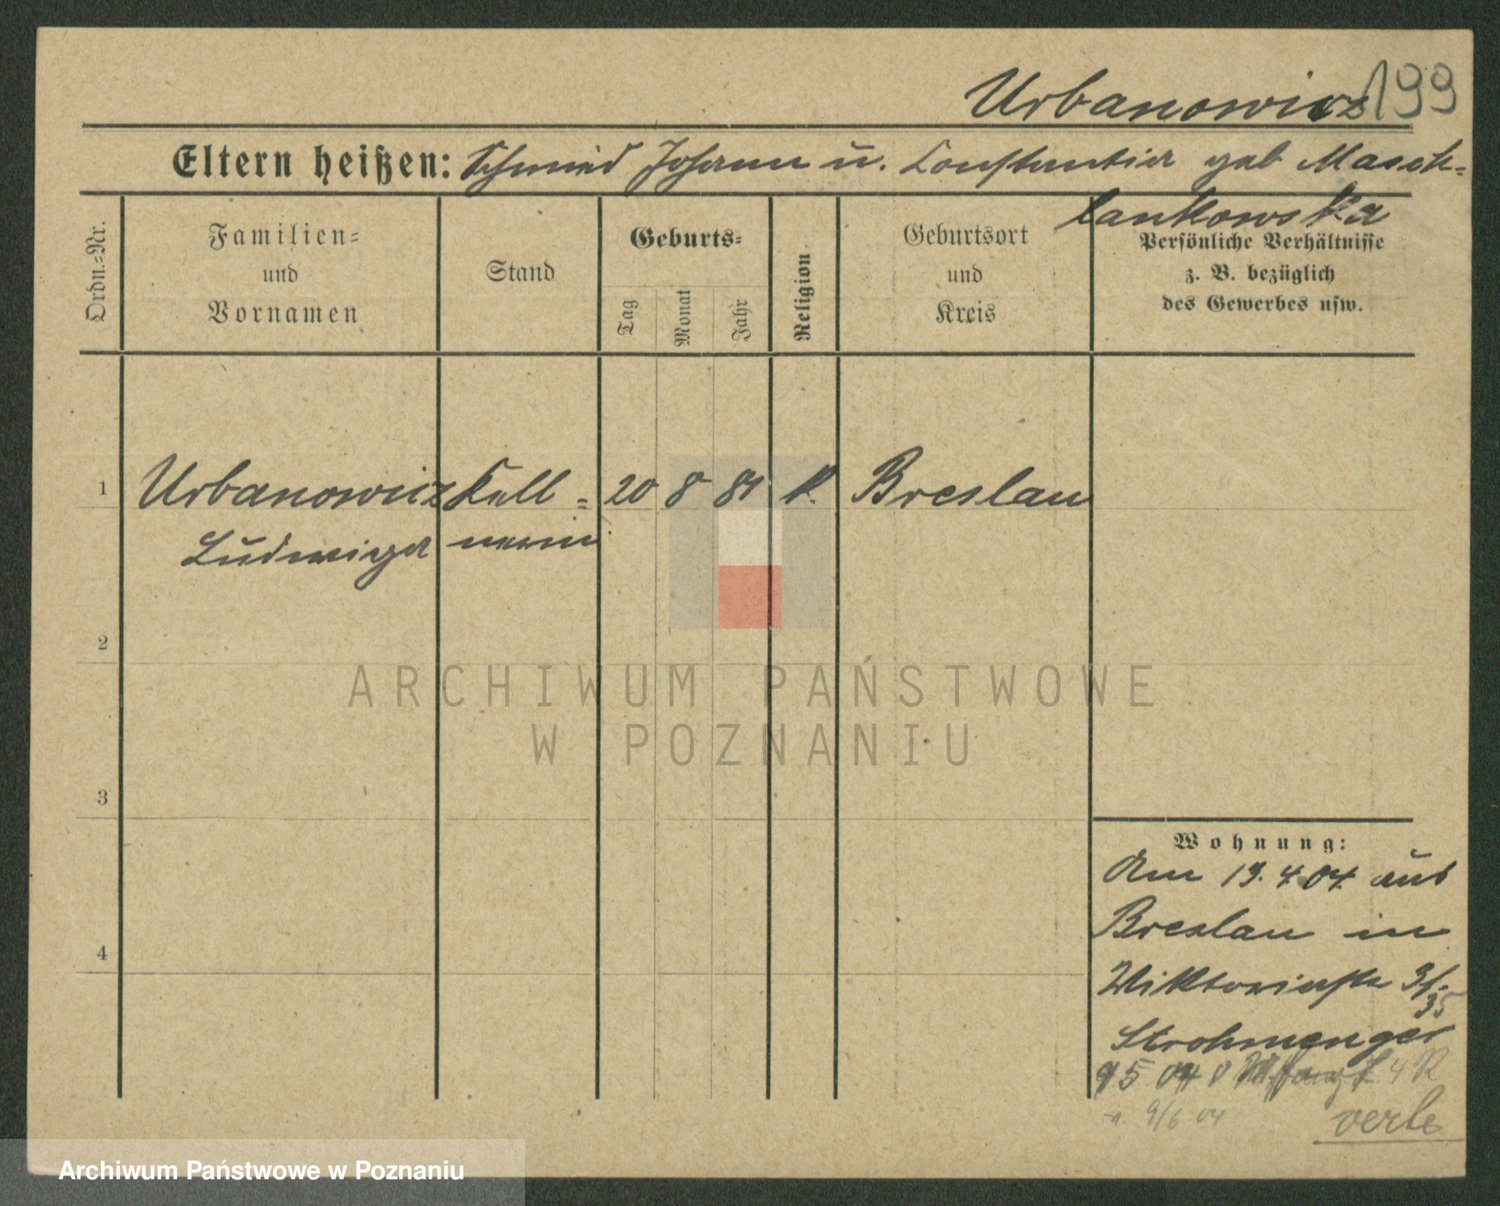 Urbanowicz 199
Eltern heißen: Schmied Johann u. Constantia geb Masch-
lankowska
Ordn.-Nr.
Familien-
und
Vornamen
Stand
Geburts-
Tag
Monat
Jahr
Religion
Geburtsort
und
Kreis
Persönliche Verhältnisse
z. B. bezüglich
des Gewerbes usw.
1 Urbanowicz Kell- 20 8 81 k. Breslau
Ludwiga nerin
2
3
4
Wohnung:
Am 19.4.04 aus
Breslau in
Wiktoriastr 31.
35
Strohmenger
9 5 04
n. 9/6 04
ARCHIWUM PAŃSTWOWE
W POZNANIU
Archiwum Państwowe w Poznaniu